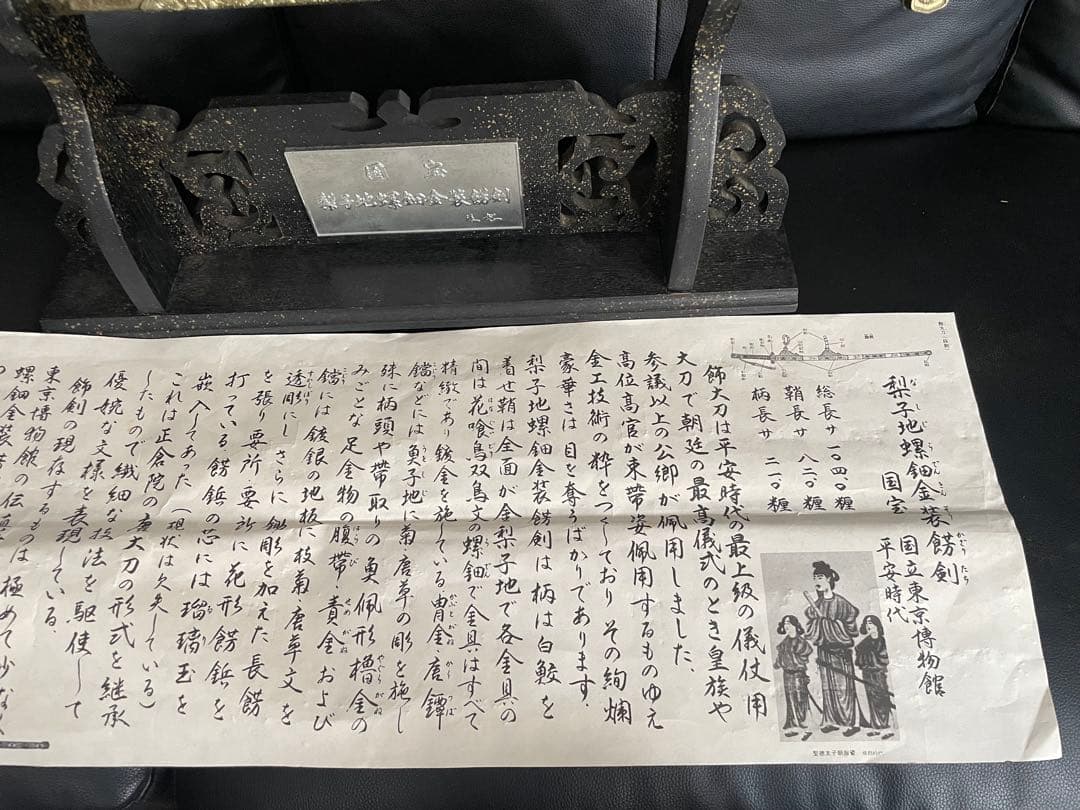 国宝
梨子地螺鈿金装餝剣
梨子地螺鈿金装餝剣
国宝
国立東京博物館
平安時代
総長サ 一〇四〇糎
鞘長サ 八二〇糎
柄長サ 二一〇糎
餝大刀は平安時代の最上級の儀仗用
大刀で朝廷の最高儀式のとき皇族や
参議以上の公卿が佩用しました、
高位高官が束帯姿佩用するものゆえ
金工技術の粋をつくしており その絢爛
豪華さは 目を奪うばかりであります.
梨子地螺鈿金装餝剣は 柄は白鮫を
着せ鞘は全面が金梨子地で各金具の
間は花喰鳥双鳥文の螺鈿で金具はすべて
精緻であり鍍金を施している冑金、唐鐔
鐺などには 魚子地に菊唐草の彫を施し
殊に柄頭や帯取りの 魚佩形櫓金の
みごとな足金物の腹帯、責金および
鐺には 鍍銀の地板に枝菊唐草文を
透彫にし さらに 鋤彫を加えた長餝
を張り要所要所に花形餝鋲を
打っている、餝鋲の心には 瑠璃玉を
嵌入してあった(現状は欠失している)
これは正倉院の唐大刀の形式を継承
したもので繊細な技法を駆使して
優婉な文様を表現している.
餝剣の現存するものは 極めて少なく
東京博物館の
螺鈿金装
聖徳太子